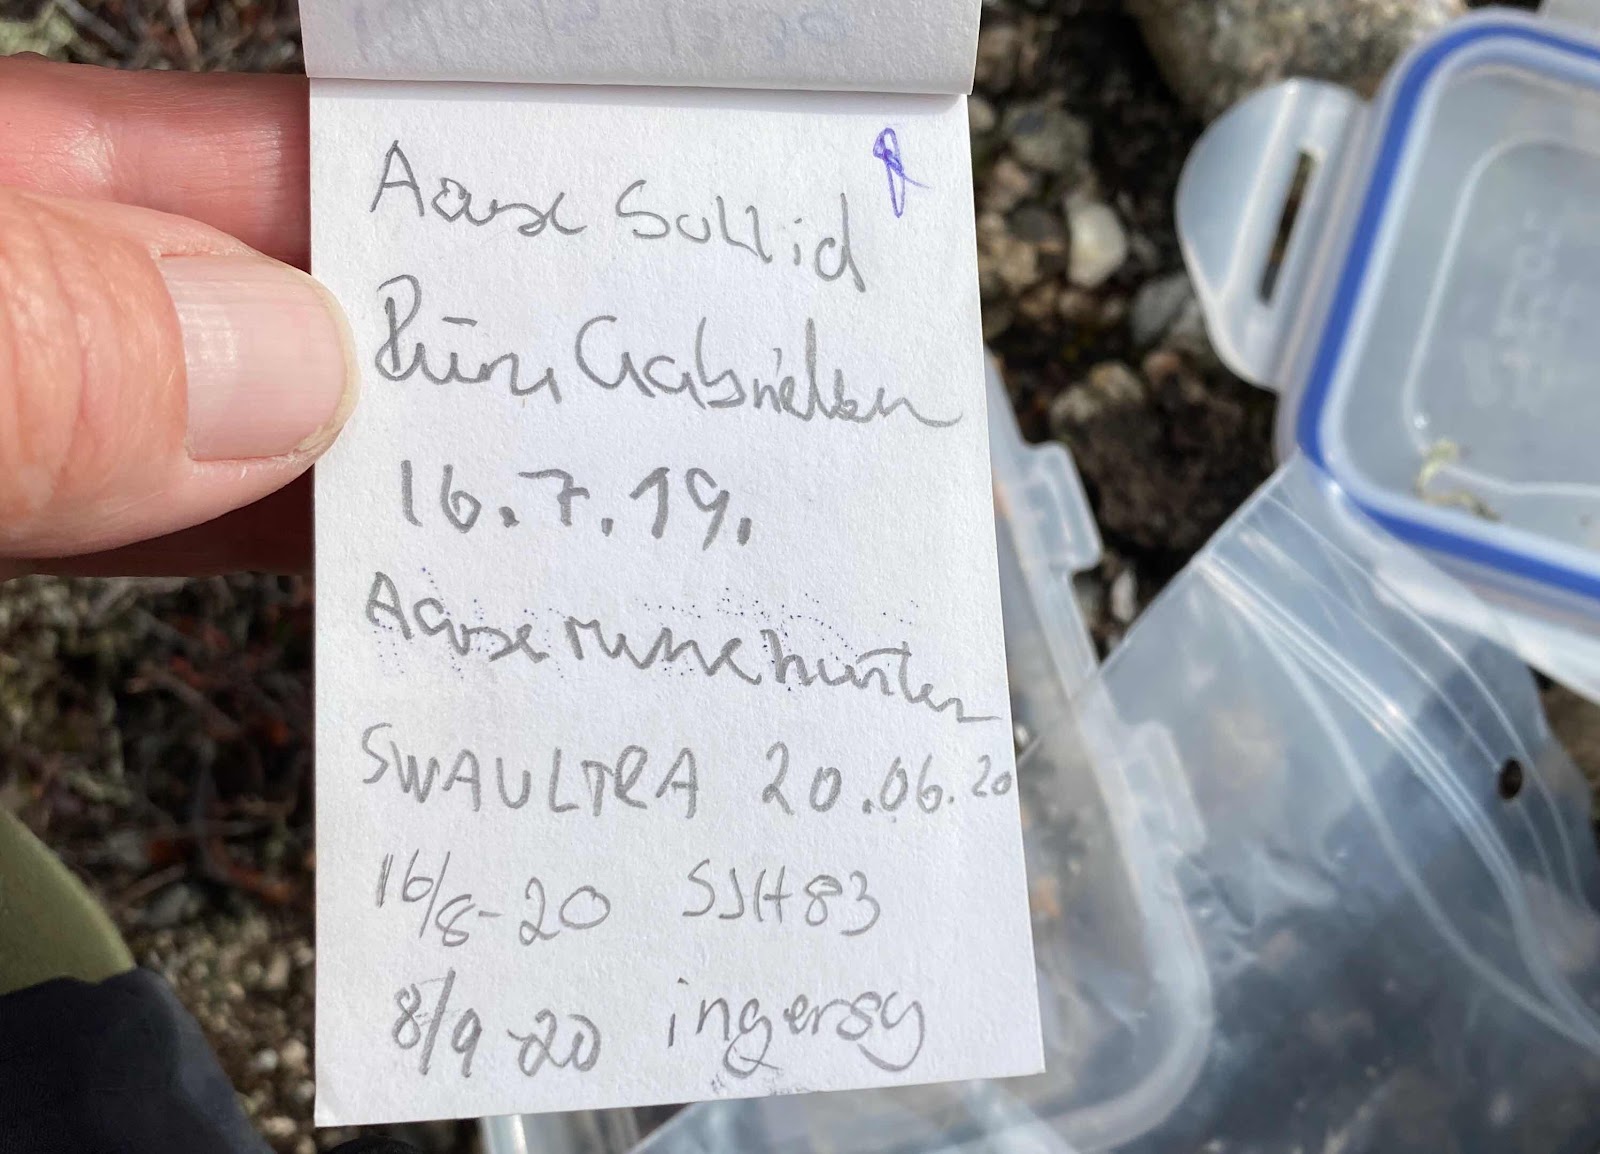 Aase Sollid
Gabrielsen
16.7.19.
Aase runehunter
SWAULTRA 20.06.20
16/8-20 SJH83
8/9-20 ingersg